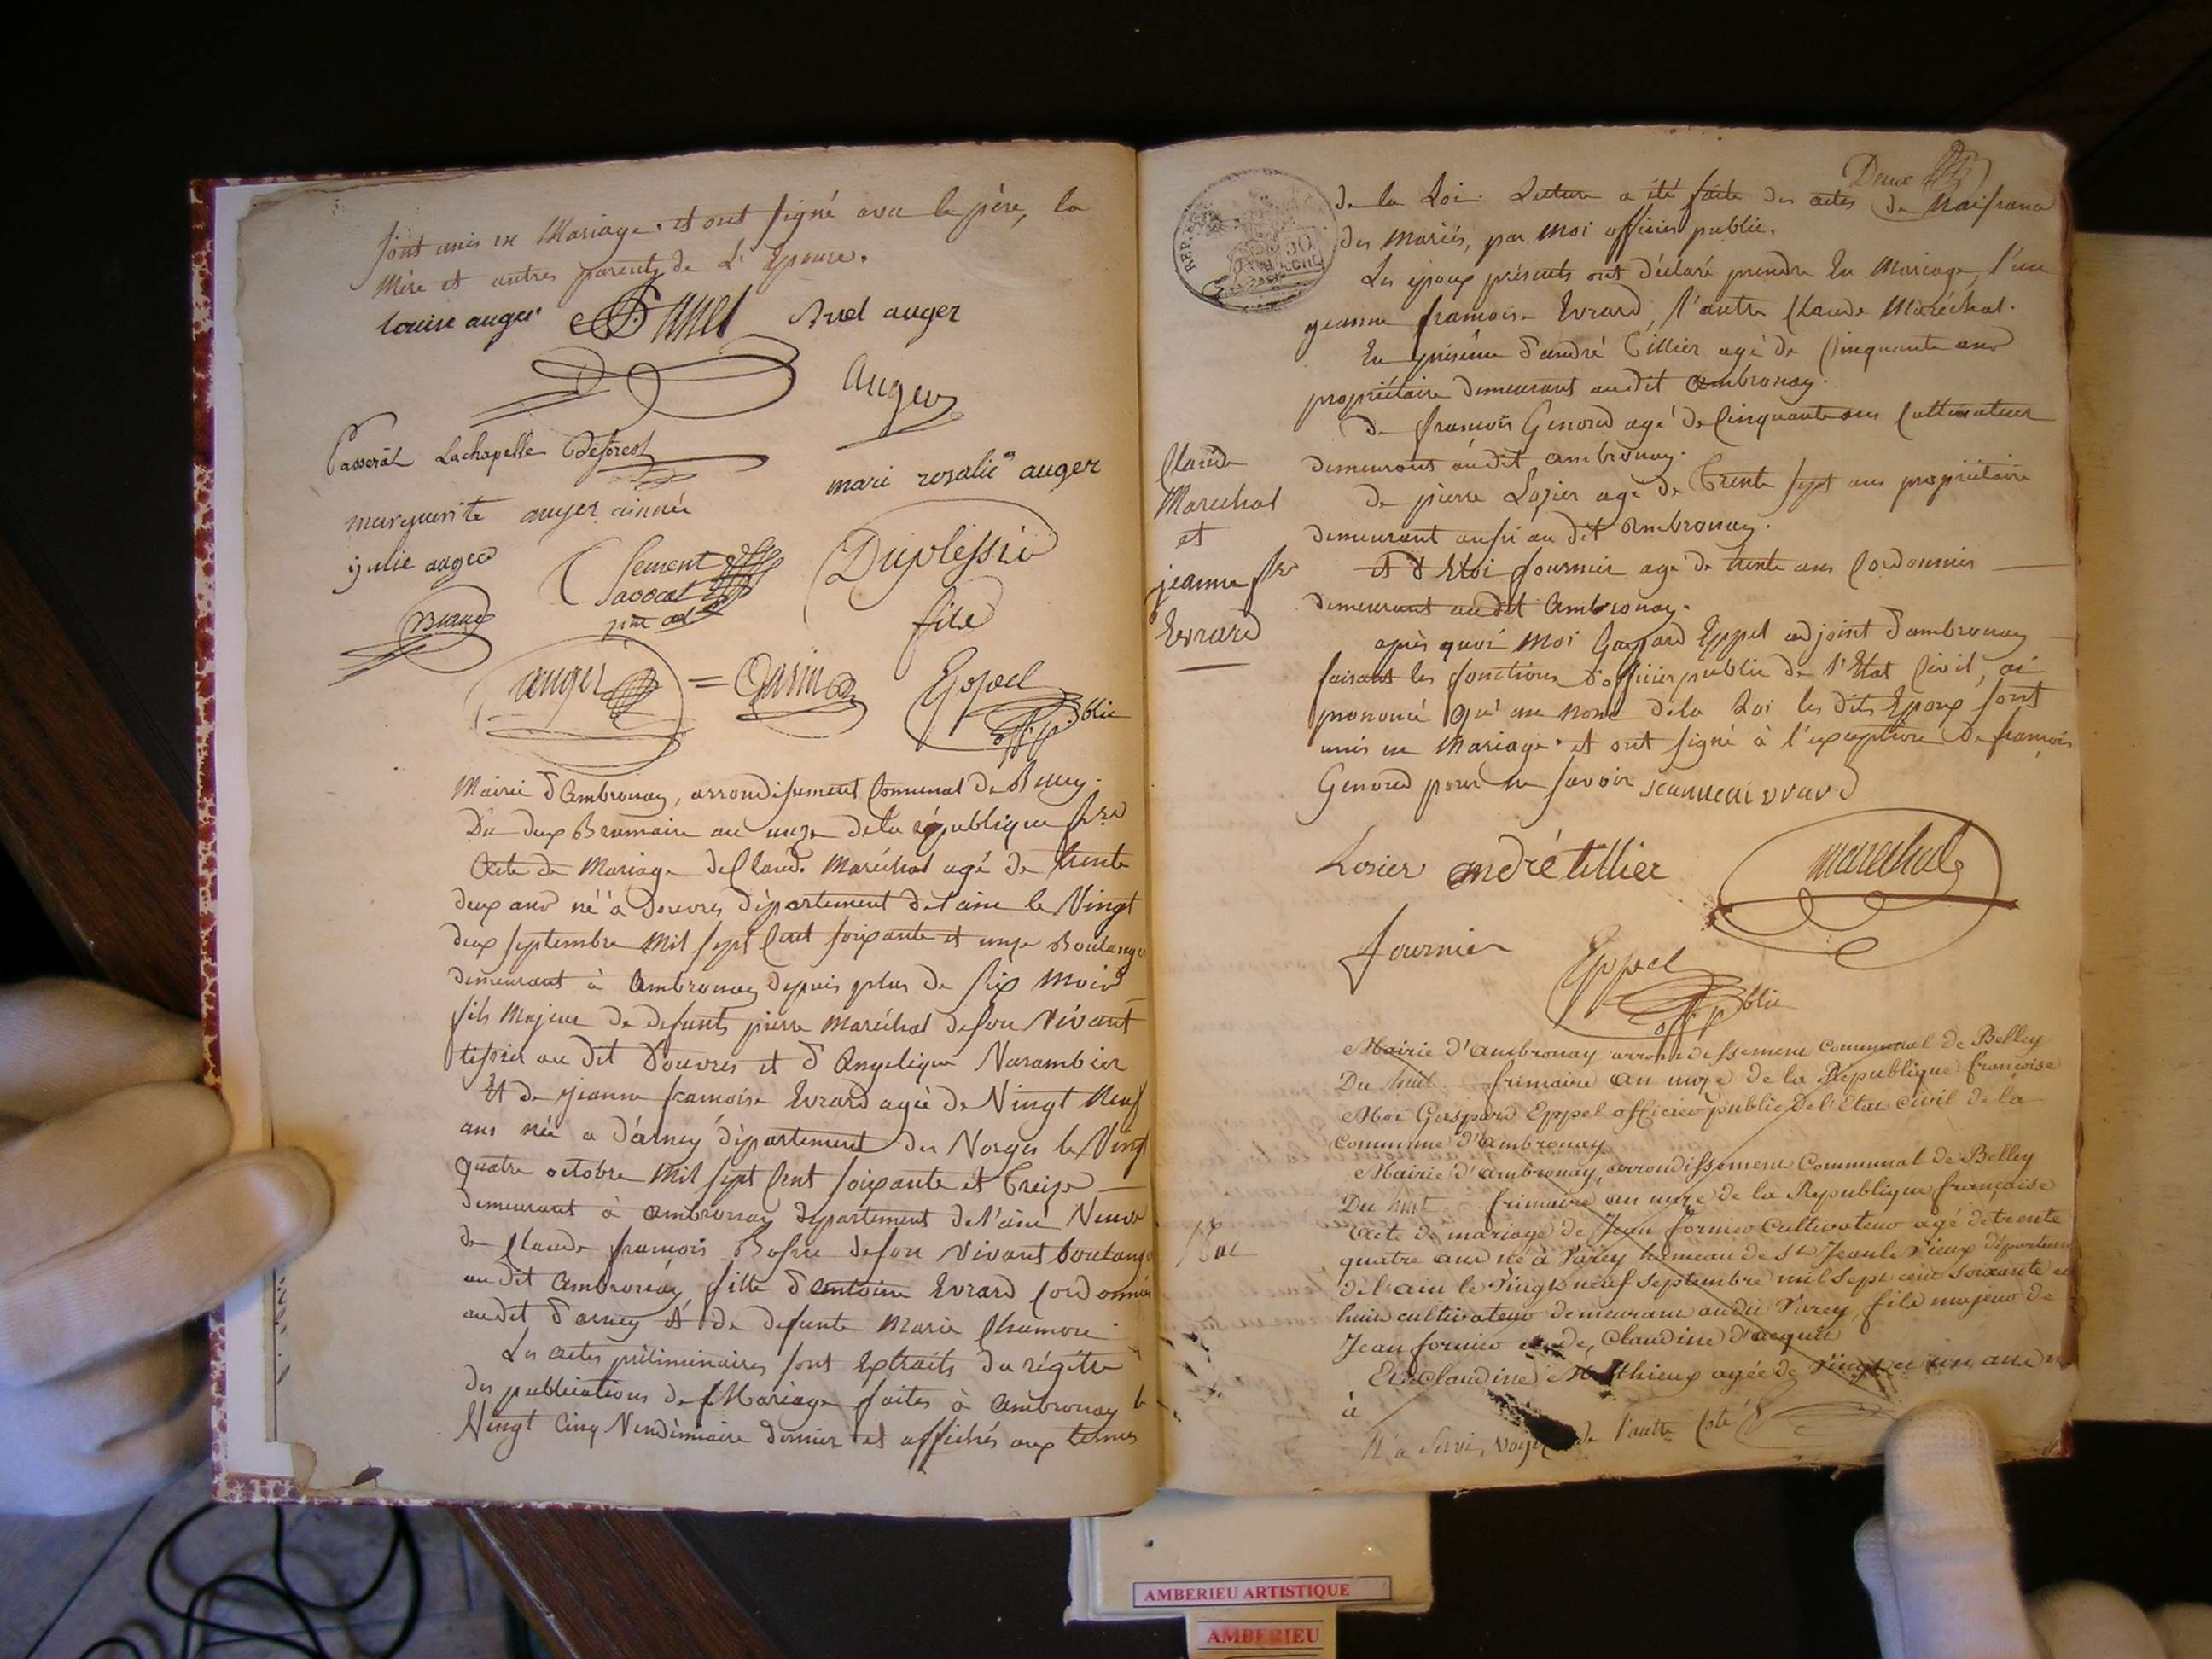 sont unis en Mariage. et ont signé avec le père, la
Mère et autres parents de L'Epouse.
louise auger
Buel auger
Auger
Passerat Lachapelle Deforest
mari rosalie auger
marguerite auger ainnée
julie auger
Duplessis
fils
auger
Eppel
off. p. blic
Mairie d'Ambronay, arrondissement Communal de Belley.
Du deux Brumaire an onze de la république fse
Acte de Mariage de Claude Maréchal agé de trente
deux ans né à Douvres département de l'ain le Vingt
deux septembre Mil sept Cent soixante et onze Boulanger
demeurant à Ambronay depuis plus de six Mois
fils Majeur de defunts pierre Maréchal de son Vivant
tissier au dit Douvres et d'Angelique Varambier
Et de jeanne francoise Evrard agée de Vingt Neuf
ans née a d'arney département des Vosges le Vingt
quatre octobre Mil sept Cent soixante et Treize
demeurant à Ambronay département de l'ain Veuve
de Claude françois de son vivant boulanger
au dit Ambronay, fille d'antoine Evrard Cordonnier
au dit d'arney et de defunte Marie
Les actes préliminaires sont Extraits du régitre
des publications de Mariage faites à Ambronay le
Vingt Cinq Vendémiaire dernier et affichés aux termes
Deux
de la Loi. Lecture a été faite des actes de Naissance
des Mariés, par Moi officier public.
Les époux présents ont déclaré prendre En Mariage, l'un
jeanne francoise Evrard, l'autre Claude Maréchal.
En présence d'andré Tillier agé de Cinquante ans
propriétaire demeurant audit Ambronay.
de françois Genoud agé de Cinquante ans Cultivateur
demeurant audit ambronay.
de pierre Lozier agé de Trente sept ans propriétaire
demeurant aussi au dit Ambronay.
Et d'Eloi fournier agé de trente ans Cordonnier
demeurant audit Ambronay.
après quoi Moi Gaspard Eppel adjoint d'ambronay
faisant les fonctions d'officier public de l'Etat Civil, ai
prononcé qu'au nom de la Loi les dits Epoux sont
unis en Mariage. et ont signé à l'exception de françois
Genoud pour ne savoir
Claude
Marechal
et
jeanne fse
Evrard
Losier andré tillier marechal
fournier
Eppel
off. p. blic
Mairie d'ambronay arrondissement Communal de Belley
Du huit frimaire an onze de la République françoise
Moi Gaspard Eppel officier public de l'Etat civil de la
commune d'ambronay
Mairie d'ambronay, arrondissement Communal de Belley
Du huit frimaire an onze de la Republique française
Acte de mariage de Jean fornier Cultivateur agé de trente
quatre ans né à Varey hameau de St Jean le Vieux départem
de l'ain le Vingt neuf septembre mil sept cent soixante et
huit cultivateur demeurant audit Varey, fils majeur de
Jean fornier et de Claudine d'acquin
Et Claudine Mathieux agée de Vingt et un ans n
à
N'a servi, voyez de l'autre coté
AMBERIEU ARTISTIQUE
AMBERIEU